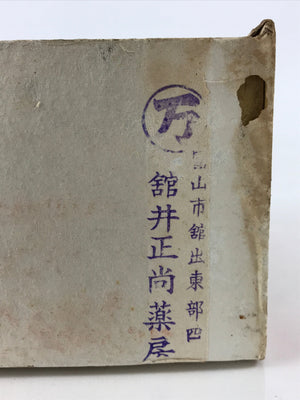 万
富山市舘出東部四
舘井正尚薬房